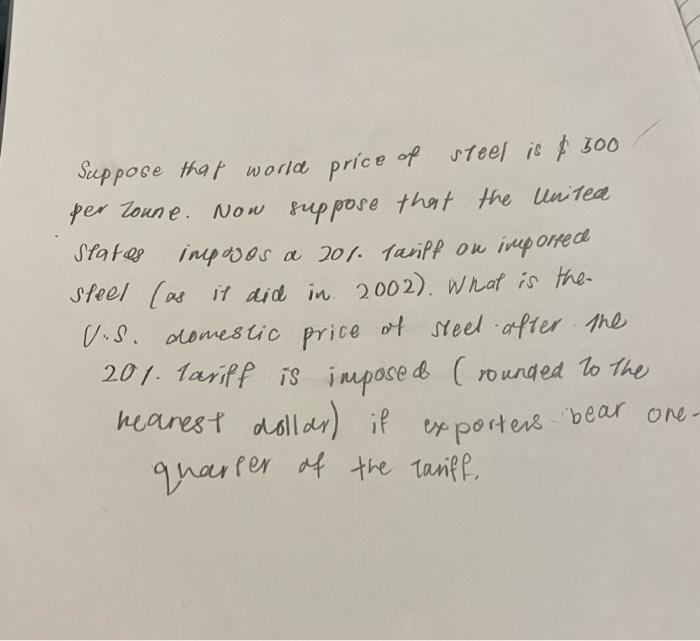 Suppose that world price of steel is $ 300
per Tonne. Now suppose that the United
States imposes a 20%. Tariff on imported
steel (as it did in 2002). What is the
U.S. domestic price of steel after the
20%. Tariff is imposed (rounded to the
nearest dollar) if exporters bear one-
quarter of the Tariff.